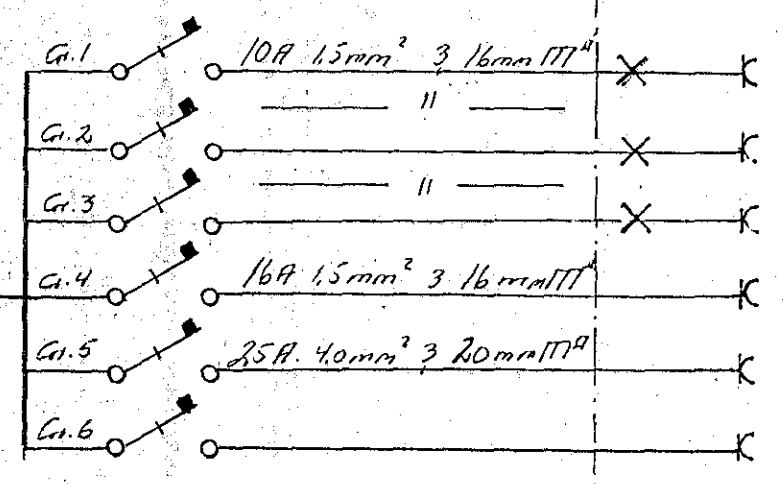 Gr.1 10A 1,5mm² 3 16mm
〃
Gr.2
〃
Gr.3
Gr.4 16A 1,5mm² 3 16mm
Gr.5 25A. 4.0mm² 3 20mm
Gr.6